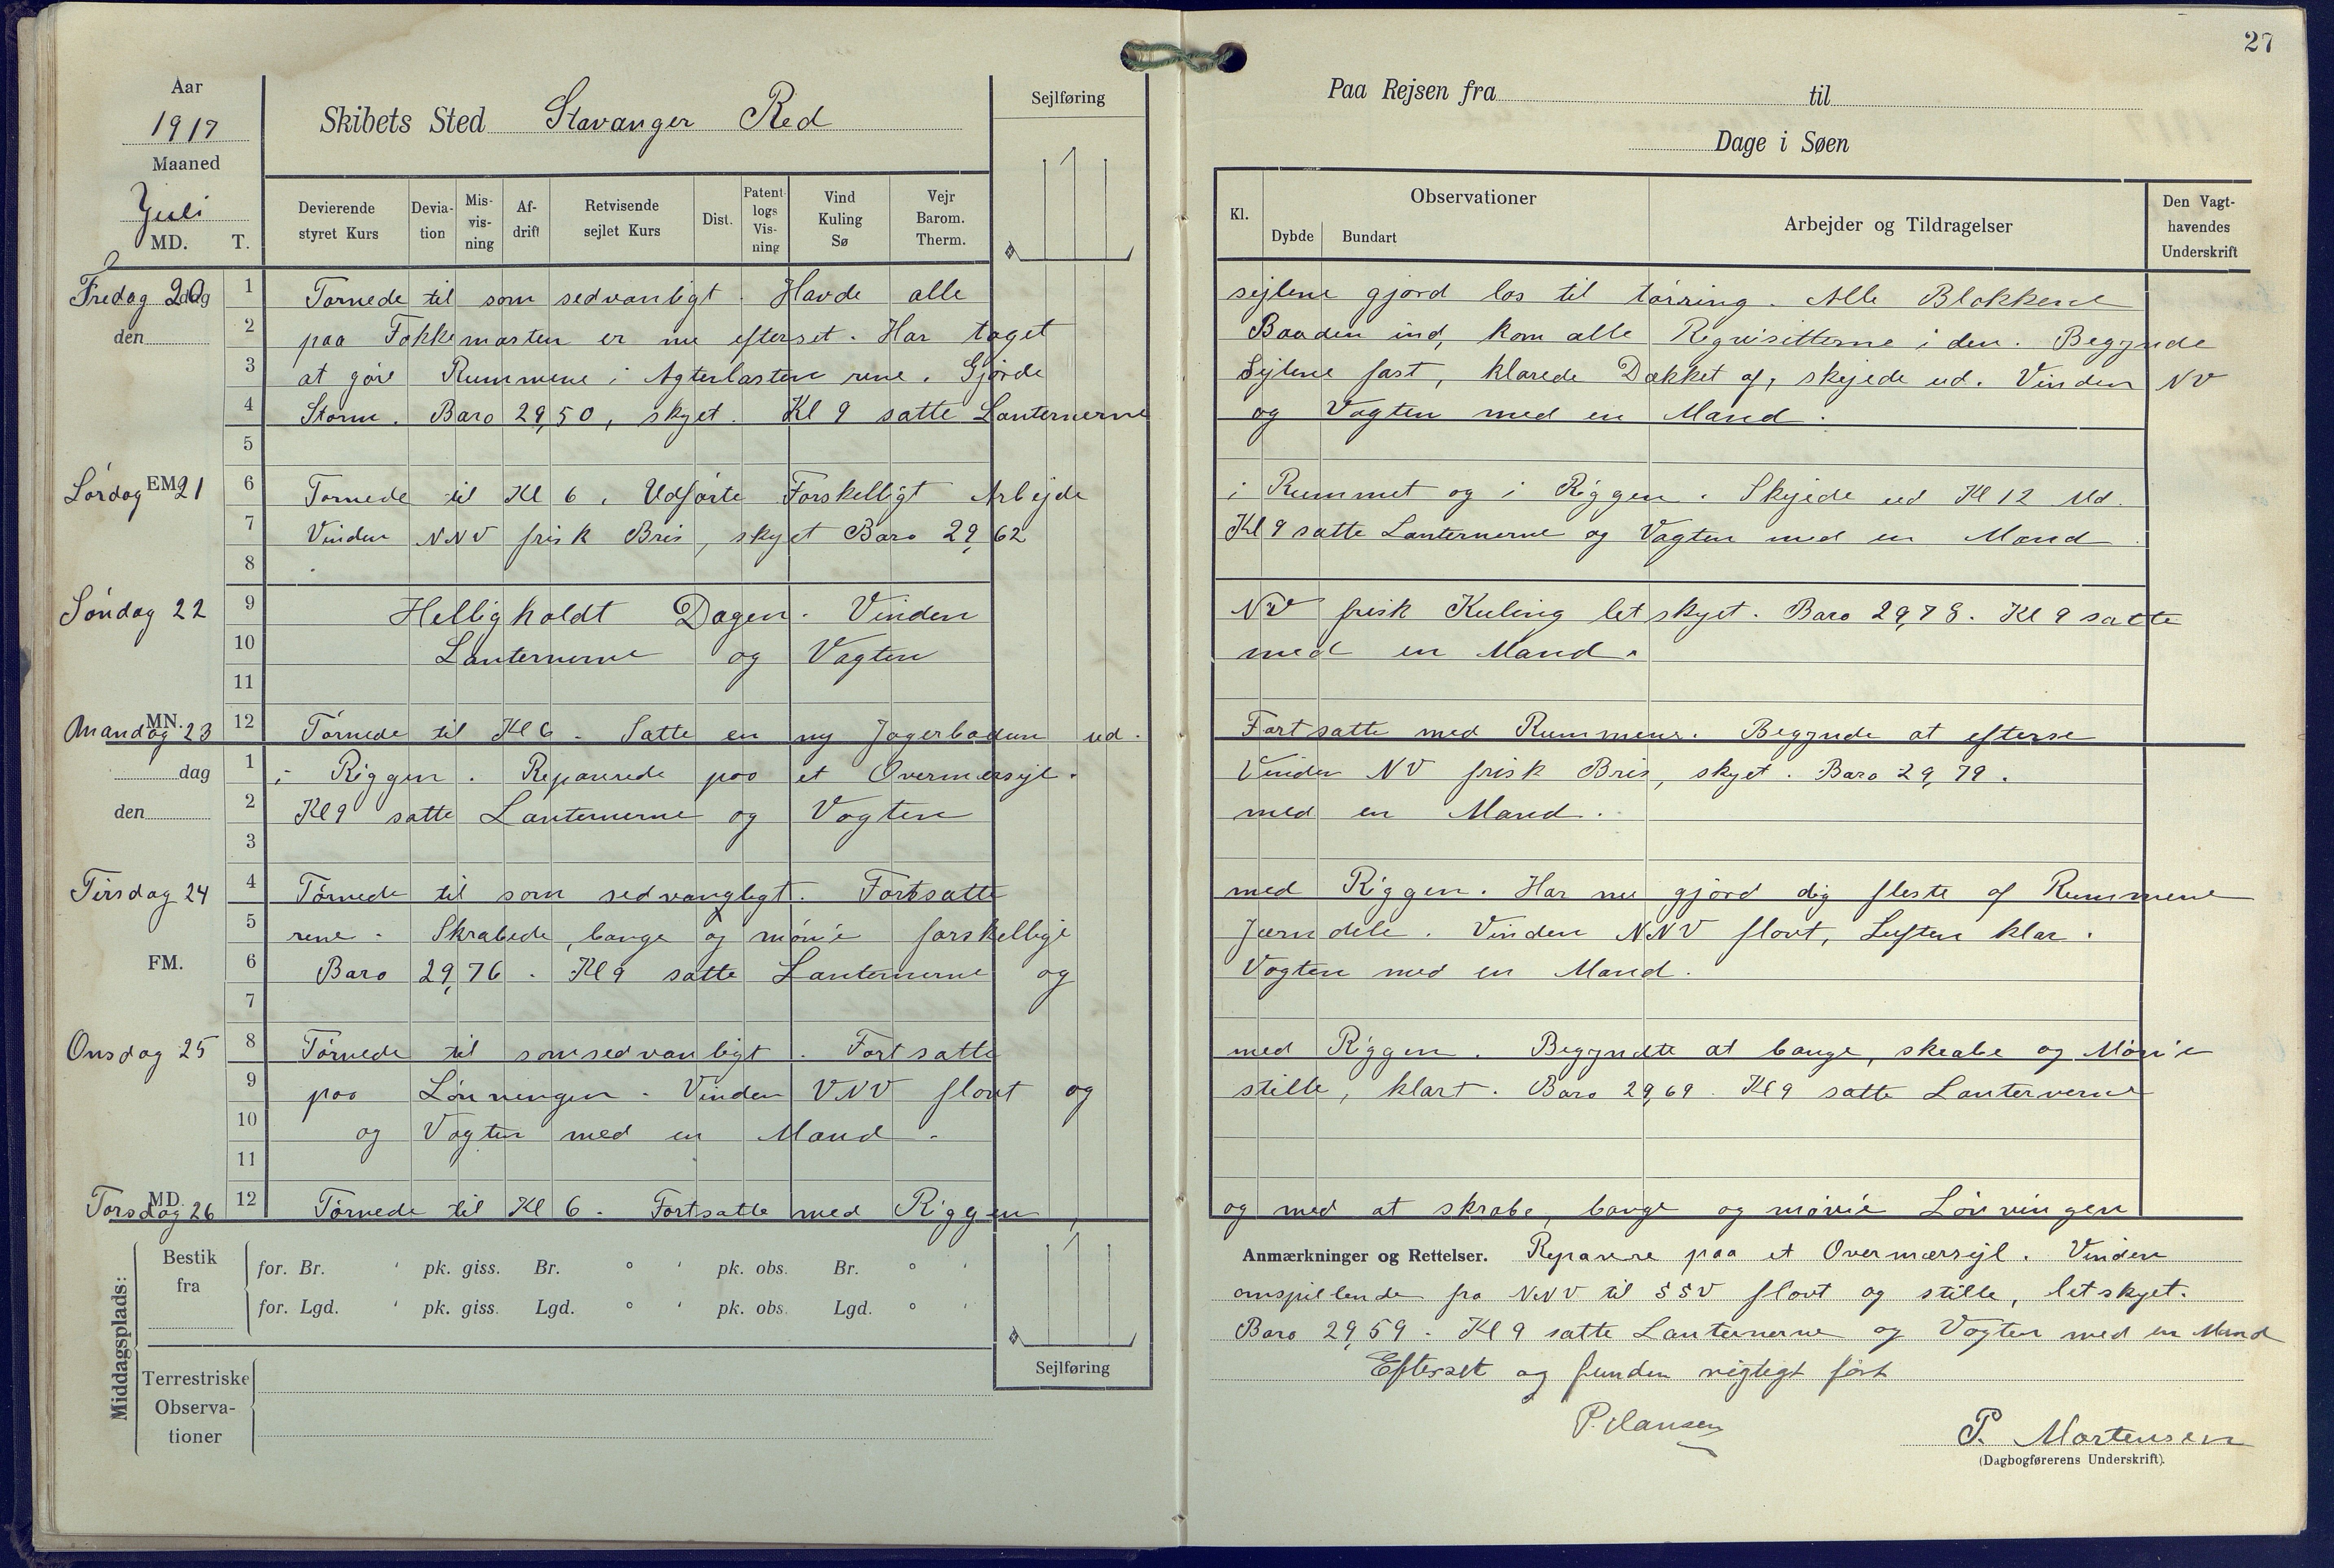 27
Aar
1917
Maaned
Juli
MD. T.
Skibets Sted Stavanger Red
Sejlføring
Paa Rejsen fra til
Dage i Søen
Devierende styret Kurs
Devia-tion
Mis-vis-ning
Af-drift
Retvisende sejlet Kurs
Dist.
Patent-logs Vis-ning
Vind Kuling Sø
Vejr Barom. Therm.
Kl.
Observationer
Dybde Bundart
Arbejder og Tildragelser
Den Vagt-havendes Underskrift
Fredag 20 dag 1 Tørnede til som sedvanligt. Havde alle sejlene gjord løs til tørring. Alle Blokkene
den 2 paa Fokkemasten er nu efterset. Har taget Baaden ind, kom alle Reqvisitterne i den. Begynde
3 at göre Rummene i Agterlasten rene. Gjorde Sejlene fast, klarede Dækket af, skejede ud. Vinden NV
4 Storm. Baro 29,50, skyet. Kl 9 satte Lanternerne og Vagten med en Mand.
5
Lördag EM 21 6 Tørnede til Kl 6. Udförte Forskelligt Arbejde i Rummet og i Riggen. Skejede ud Kl 12 Md.
7 Vinden NNV frisk Bris, skyet Baro 29,62 Kl 9 satte Lanternerne og Vagten med en Mand.
8
Söndag 22 9 Helligholdt Dagen. Vinden NV frisk Kuling let skyet. Baro 29,78. Kl 9 satte
10 Lanternerne og Vagten med en Mand.
11
Mandag MN. 23 12 Törnede til Kl 6. Satte en ny Jagerbadun ud. Fortsatte med Rummene. Begynde at efterse
dag 1 i Riggen. Reparrede paa et Overmærsejl. Vinden NV frisk Bris, skyet. Baro 29,79.
den 2 Kl 9 satte Lanternerne og Vagten med en Mand.
3
Tirsdag 24 4 Törnede til som sedvangligt. Fortsatte med Riggen. Har nu gjörd dig fleste af Rummene
5 rene. Skrabede, bange og mön'e forskellige Jærndele. Vinden NNV flovt, Luften klar.
FM. 6 Baro 29,76. Kl 9 satte Lanternerne og Vagten med en Mand.
7
Onsdag 25 8 Törnede til som sedvanligt. Fortsatte med Riggen. Begyndte at bange, skrabe og Mön'e
9 paa Lönningen. Vinden VNV flovt og stille, klart. Baro 29,69. Kl 9 satte Lanternerne
10 og Vagten med en Mand.
11
Torsdag MD. 26 12 Törnede til Kl 6. Fortsatte med Riggen, og med at skrabe, bange og mönie Lönningen
Anmærkninger og Rettelser. Reparere paa et Overmærsejl. Vinden
omspillende fra NNV til SSV flovt og stille, letskyet.
Baro 29,59. Kl 9 satte Lanternerne og Vagten med en Mand
Efterset og funden rigtigt fört
P. Hansen
P. Mortensen
(Dagbogførerens Underskrift).
Middagsplads:
Bestik fra
for. Br. ' pk. giss. Br. ° ' pk. obs. Br. ° '
for. Lgd. ' pk. giss. Lgd. ° ' pk. obs. Lgd. ° '
Terrestriske Observa-tioner
Sejlføring